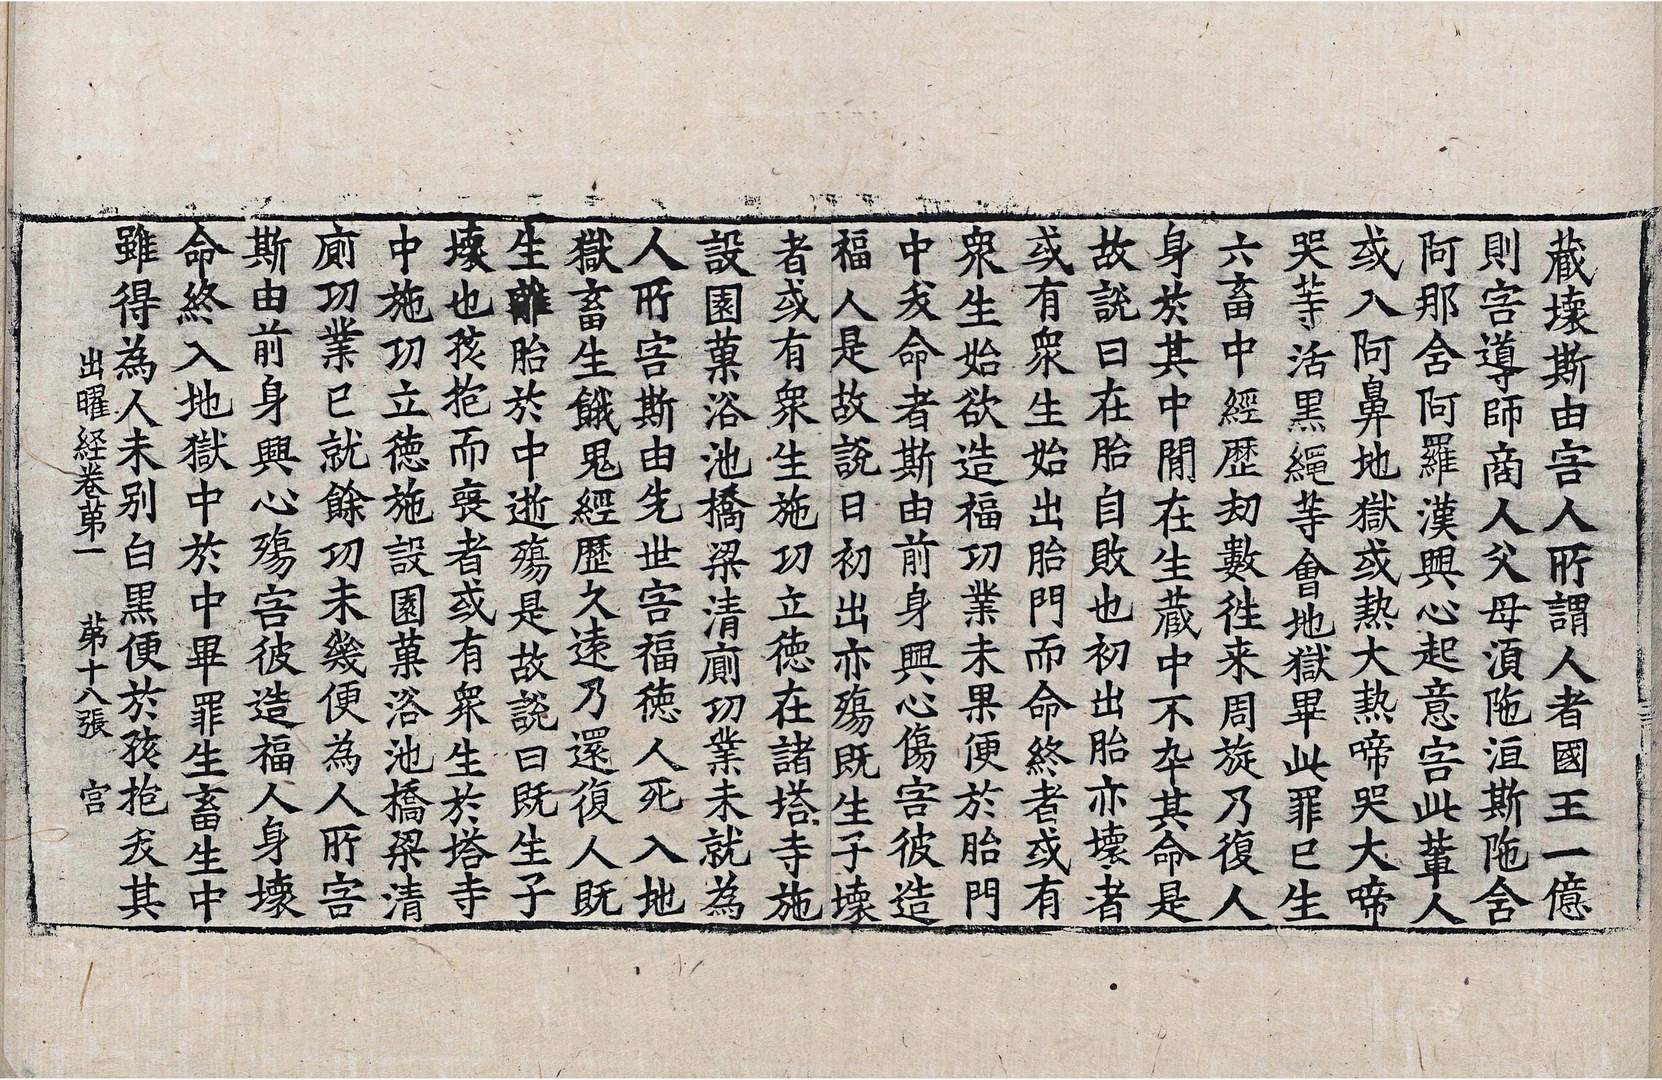 藏壞斯由害人所謂人者國王一億
則害導師商人父母湏陁洹斯陁含
阿那含阿羅漢興心起意害此輩人
或入阿鼻地獄或熱大熱啼哭大啼
哭等活黑繩等會地獄畢此罪已生
六畜中經歷劫數徃来周旋乃復人
身於其中閒在生藏中不卒其命是
故說曰在胎自敗也初出胎亦壞者
或有衆生始出胎門而命終者或有
衆生始欲造福功業未果便於胎門
中夭命者斯由前身興心傷害彼造
福人是故說曰初出亦殤既生子壞
者或有衆生施功立德在諸塔寺施
設園菓浴池橋梁清廁功業未就為
人所害斯由先世害福德人死入地
獄畜生餓鬼經歷久遠乃還復人既
生離胎於中逝殤是故說曰既生子
壞也孩抱而喪者或有衆生於塔寺
中施功立德施設園菓浴池橋梁清
廁功業已就餘功未幾便為人所害
斯由前身興心殤害彼造福人身壞
命終入地獄中於中畢罪生畜生中
雖得為人未別白黑便於孩抱夭其
出曜経卷苐一 苐十八張 宫